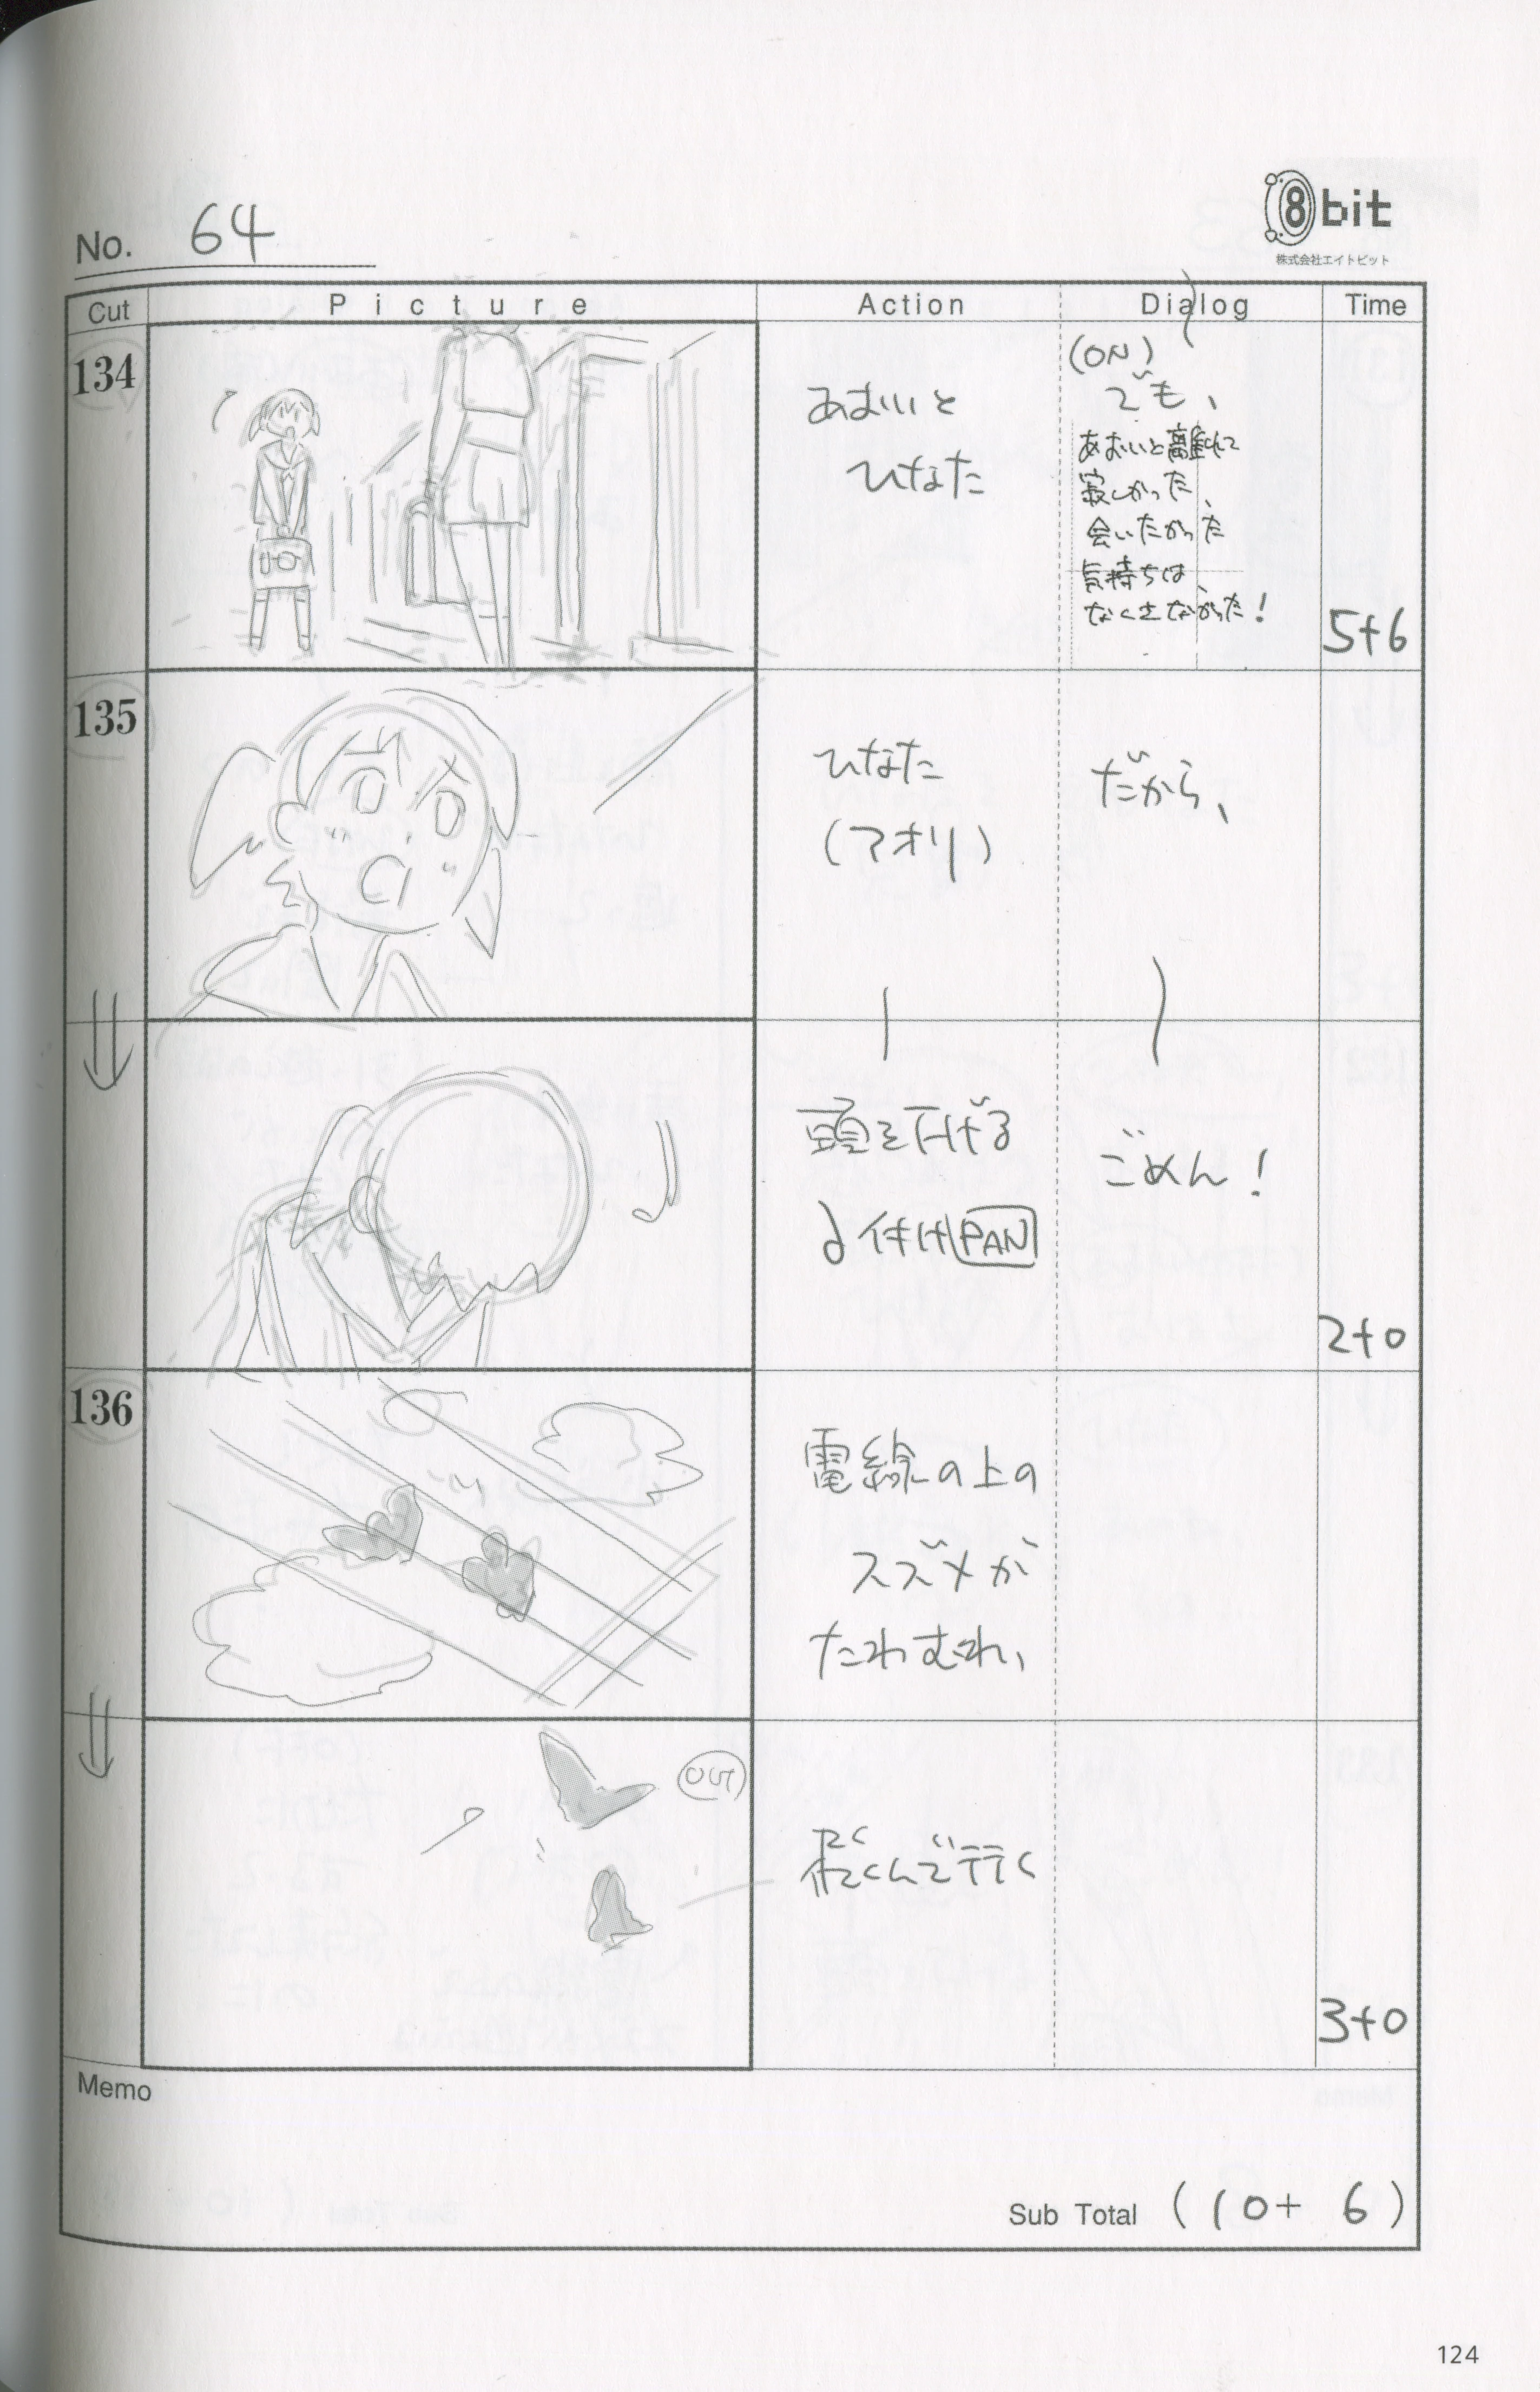 No. 64
8bit
株式会社エイトビット
Cut Picture Action Dialog Time
134
あおいと
ひなた
(ON)
でも、
あおいと離れて
寂しかった、
会いたかった
気持ちは、
なくさなかった!
5+6
135
ひなた
(アオリ)
だから、
頭を下げる
付けPAN
ごめん!
2+0
136
電線の上の
スズメが
たわむれ、
OUT
飛んで行く
3+0
Memo
Sub Total (10+6)
124